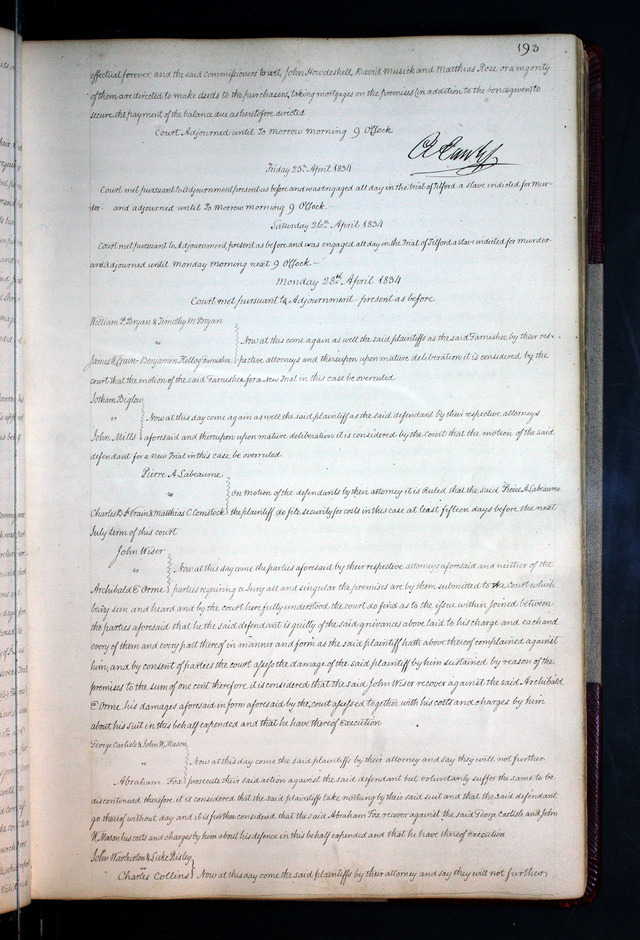 193
effectual forever, and the said Commissioners to wit, John Howdeshell, David Musick and Matthias Rose or a majority
of them are directed to make deeds to the purchasers, taking mortgages on the premises (in addition to the bonds given) to
secure the payment of the balance due as heretofore directed
Court Adjourned until To Morrow Morning 9 O'Clock
Friday 25th April 1834
Court met pursuant to Adjournment present as before and was engaged all day in the trial of Tilford a slave indicted for mur-
der and adjourned until To Morrow morning 9 O'Clock
Saturday 26th April 1834
Court met pursuant to Adjournment, present as before and was engaged all day in the Trial of Tilford a slave indicted for murder
and Adjourned until Monday Morning next 9 O'Clock
Monday 28th April 1834
Court met pursuant to Adjournment present as before
William P. Bryan & Timothy M. Bryan
vs Now at this come again as well the said plaintiffs as the said Garnishee, by their res-
James W Crain Benjamin Kellog Garnishee pective attorneys and thereupon upon mature deliberation it is considered by the
court that the motion of the said Garnishee for a New Trial in this case be overruled
Jotham Biglow
vs Now at this day come again as well the said plaintiff as the said defendant by their respective attorneys
John Mills aforesaid and thereupon upon mature deliberation it is considered by the Court that the motion of the said
defendant for a New Trial in this case be overruled
Pierre A Labeaume
vs On motion of the defendants by their attorney it is Ruled that the said Pierre A Labeaume
Charles D St Vrain & Matthias C Comstock the plaintiff do file security for costs in this case at least fifteen days before the next
July term of this court
John Wiser
vs Now at this day come the parties aforesaid by their respective attorneys aforesaid and neither of the
Archibald E Orme parties requiring a Jury all and singular the premises are by them submitted to the Court which
being seen and heard and by the court here fully understood the court do find as to the issue within Joined between
the parties aforesaid that he the said defendant is guilty of the said grievances above laid to his charge and each and
every of them and every part thereof in manner and form as the said plaintiff hath above thereof complained against
him, and by consent of parties the court assess the damage of the said plaintiff by him sustained by reason of the
premises to the sum of one cent therefore it is considered that the said John Wiser recover against the said Archibald
E Orme his damages aforesaid in form aforesaid by the court assessed together with his costs and charges by him
about his suit in this behalf expended and that he have thereof Execution
George Carlisle & John W. Mason
vs Now at this day come the said plaintiffs by their attorney and say they will not further
Abraham Fox prosecute their said action against the said defendant but voluntarily suffer the same to be
discontinued therefore it is considered that the said plaintiffs take nothing by their said suit and that the said defendant
go thereof without day and it is further considered that the said Abraham Fox recover against the said George Carlisle and John
W Mason his costs and charges by him about his defence in this behalf expended and that he have thereof execution
John Warburton & Luke Risley
vs
Charles Collins Now at this day come the said plaintiffs by their attorney and say they will not further